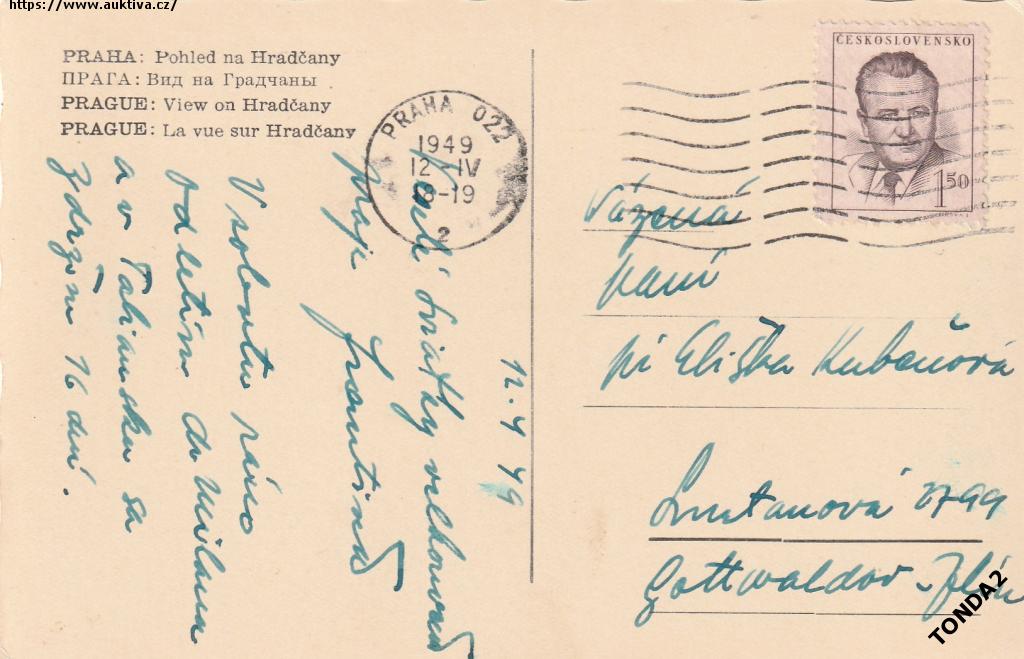 https://www.auktiva.cz/
PRAHA: Pohled na Hradčany
ПРАГА: Вид на Градчаны
PRAGUE: View on Hradčany
PRAGUE: La vue sur Hradčany
PRAHA 022
1949
12-IV
18-19
2
ČESKOSLOVENSKO
1.50
12.4 49
sviatky
praje
V sobotu ráno
odletím do Milana
a v Taliansku sa
zdržím 16 dní.
Vážená
paní
pí Eliška Kubačová
Smetanová 2799
Gottwaldov - Zlín
TONDA2